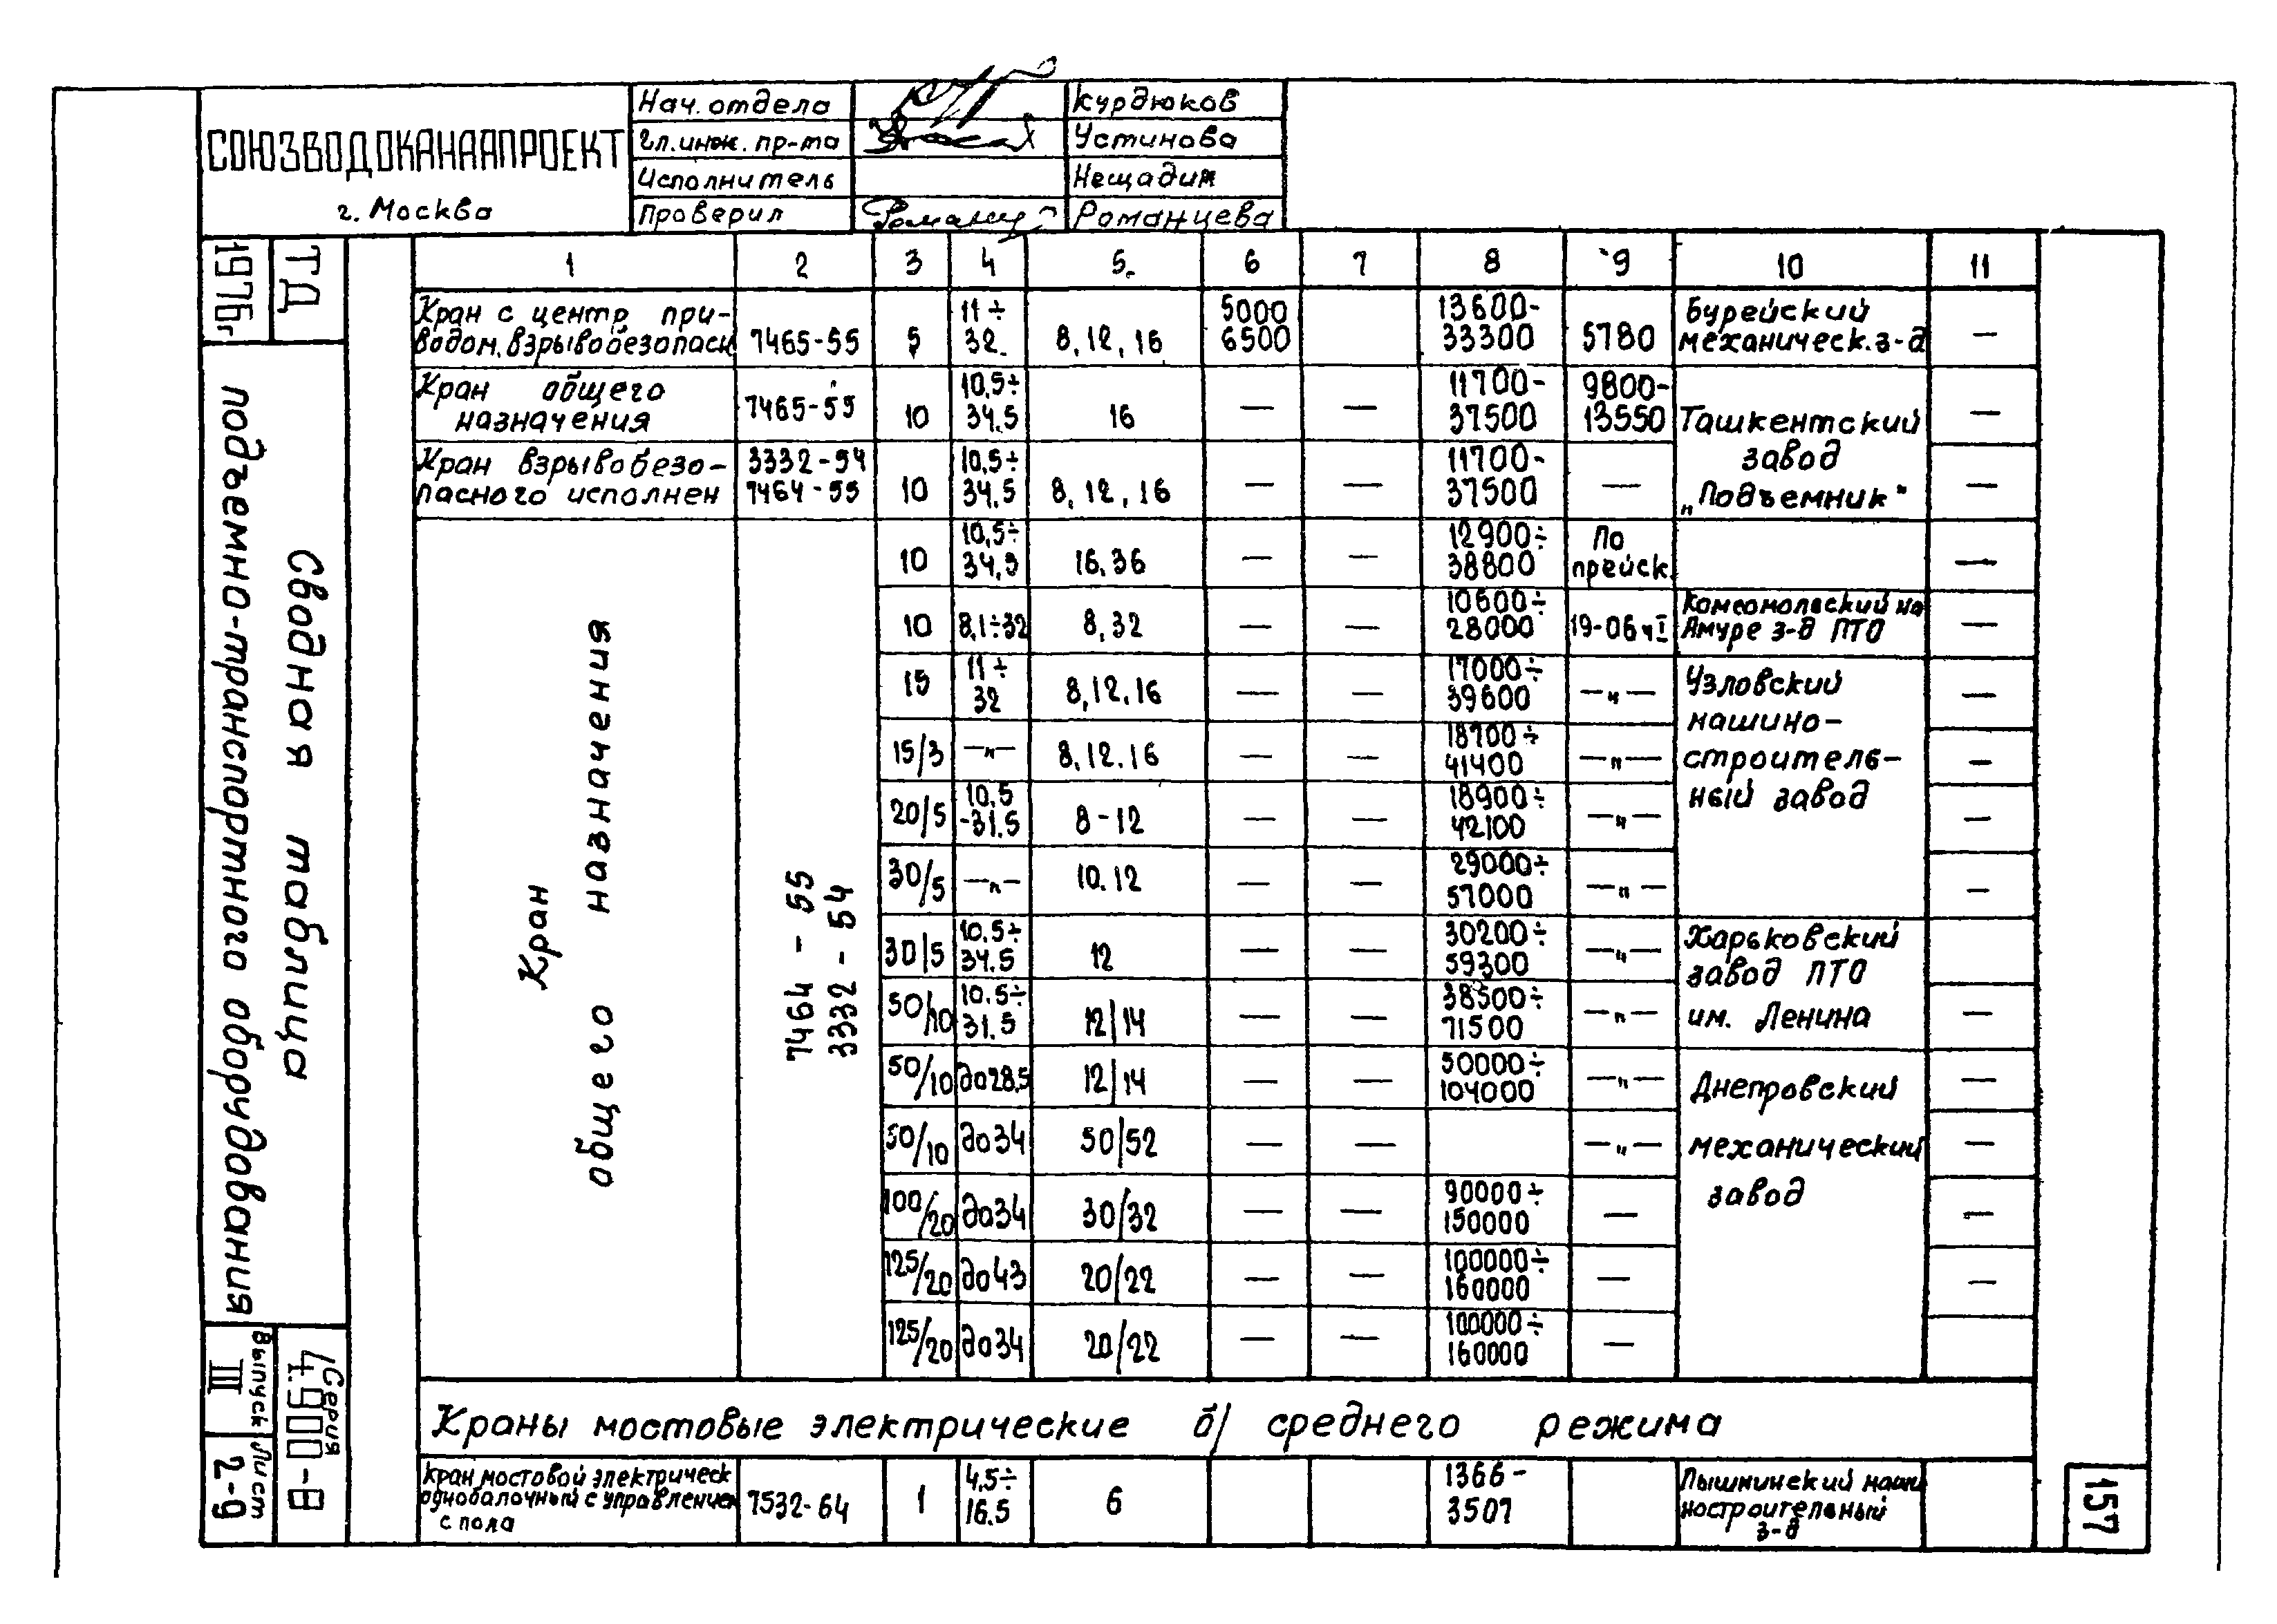 СОЮЗВОДОКАНАЛПРОЕКТ
г. Москва
Нач. отдела Курдюков
Гл. инж. пр-та Устинова
Исполнитель Нещадим
Проверил Романцева
ТД
1976г
Сводная таблица
подъемно-транспортного оборудования
Серия
4.900-8
Выпуск
III
Лист
2-9
1 2 3 4 5 6 7 8 9 10 11
Кран с центр при-
водом. взрывобезопасн 7465-55 5 11÷ 32 8, 12, 16 5000 6500 13600- 33300 5780 Бурейский механическ. з-д —
Кран общего
назначения 7465-55 10 10,5÷ 34.5 16 — — 11700- 37500 9800- 13550 Ташкентский завод „Подъемник" —
Кран взрывобезо-
пасного исполнен 3332-54 7464-55 10 10,5÷ 34,5 8, 12, 16 — — 11700- 37500 — —
Кран
общего назначения
7464 - 55
3332 - 54
10 10,5÷ 34,5 16, 36 — — 12900÷ 38800 По прейск. —
10 8,1÷32 8, 32 — — 10600÷ 28000 19-06 ч I Комсомольский на Амуре з-д ПТО —
15 11÷ 32 8, 12, 16 — — 17000÷ 39600 —"— Узловский машино- строитель- ный завод —
15/3 —"— 8, 12. 16 — — 18700÷ 41400 —"— —
20/5 10,5 -31.5 8-12 — — 18900÷ 42100 —"— —
30/5 —"— 10. 12 — — 29000÷ 57000 —"— —
30/5 10.5÷ 34.5 12 — — 30200÷ 59300 —"— Харьковский завод ПТО им. Ленина
50/10 10.5÷ 31.5 12/14 — — 38500÷ 71500 —"— —
50/10 до28,5 12/14 — — 50000÷ 104000 —"— Днепровский механический завод —
50/10 до34 50/52 — — —"— —
100/20 до34 30/32 — — 90000÷ 150000 — —
125/20 до43 20/22 — — 100000÷ 160000 — —
125/20 до34 20/22 — — 100000÷ 160000 —
Краны мостовые электрические б/ среднего режима
Кран мостовой электрическ
однобалочный с управлением
с пола 7532-64 1 4,5÷ 16.5 6 1366- 3507 Пышминский маши ностроительный з-д
157